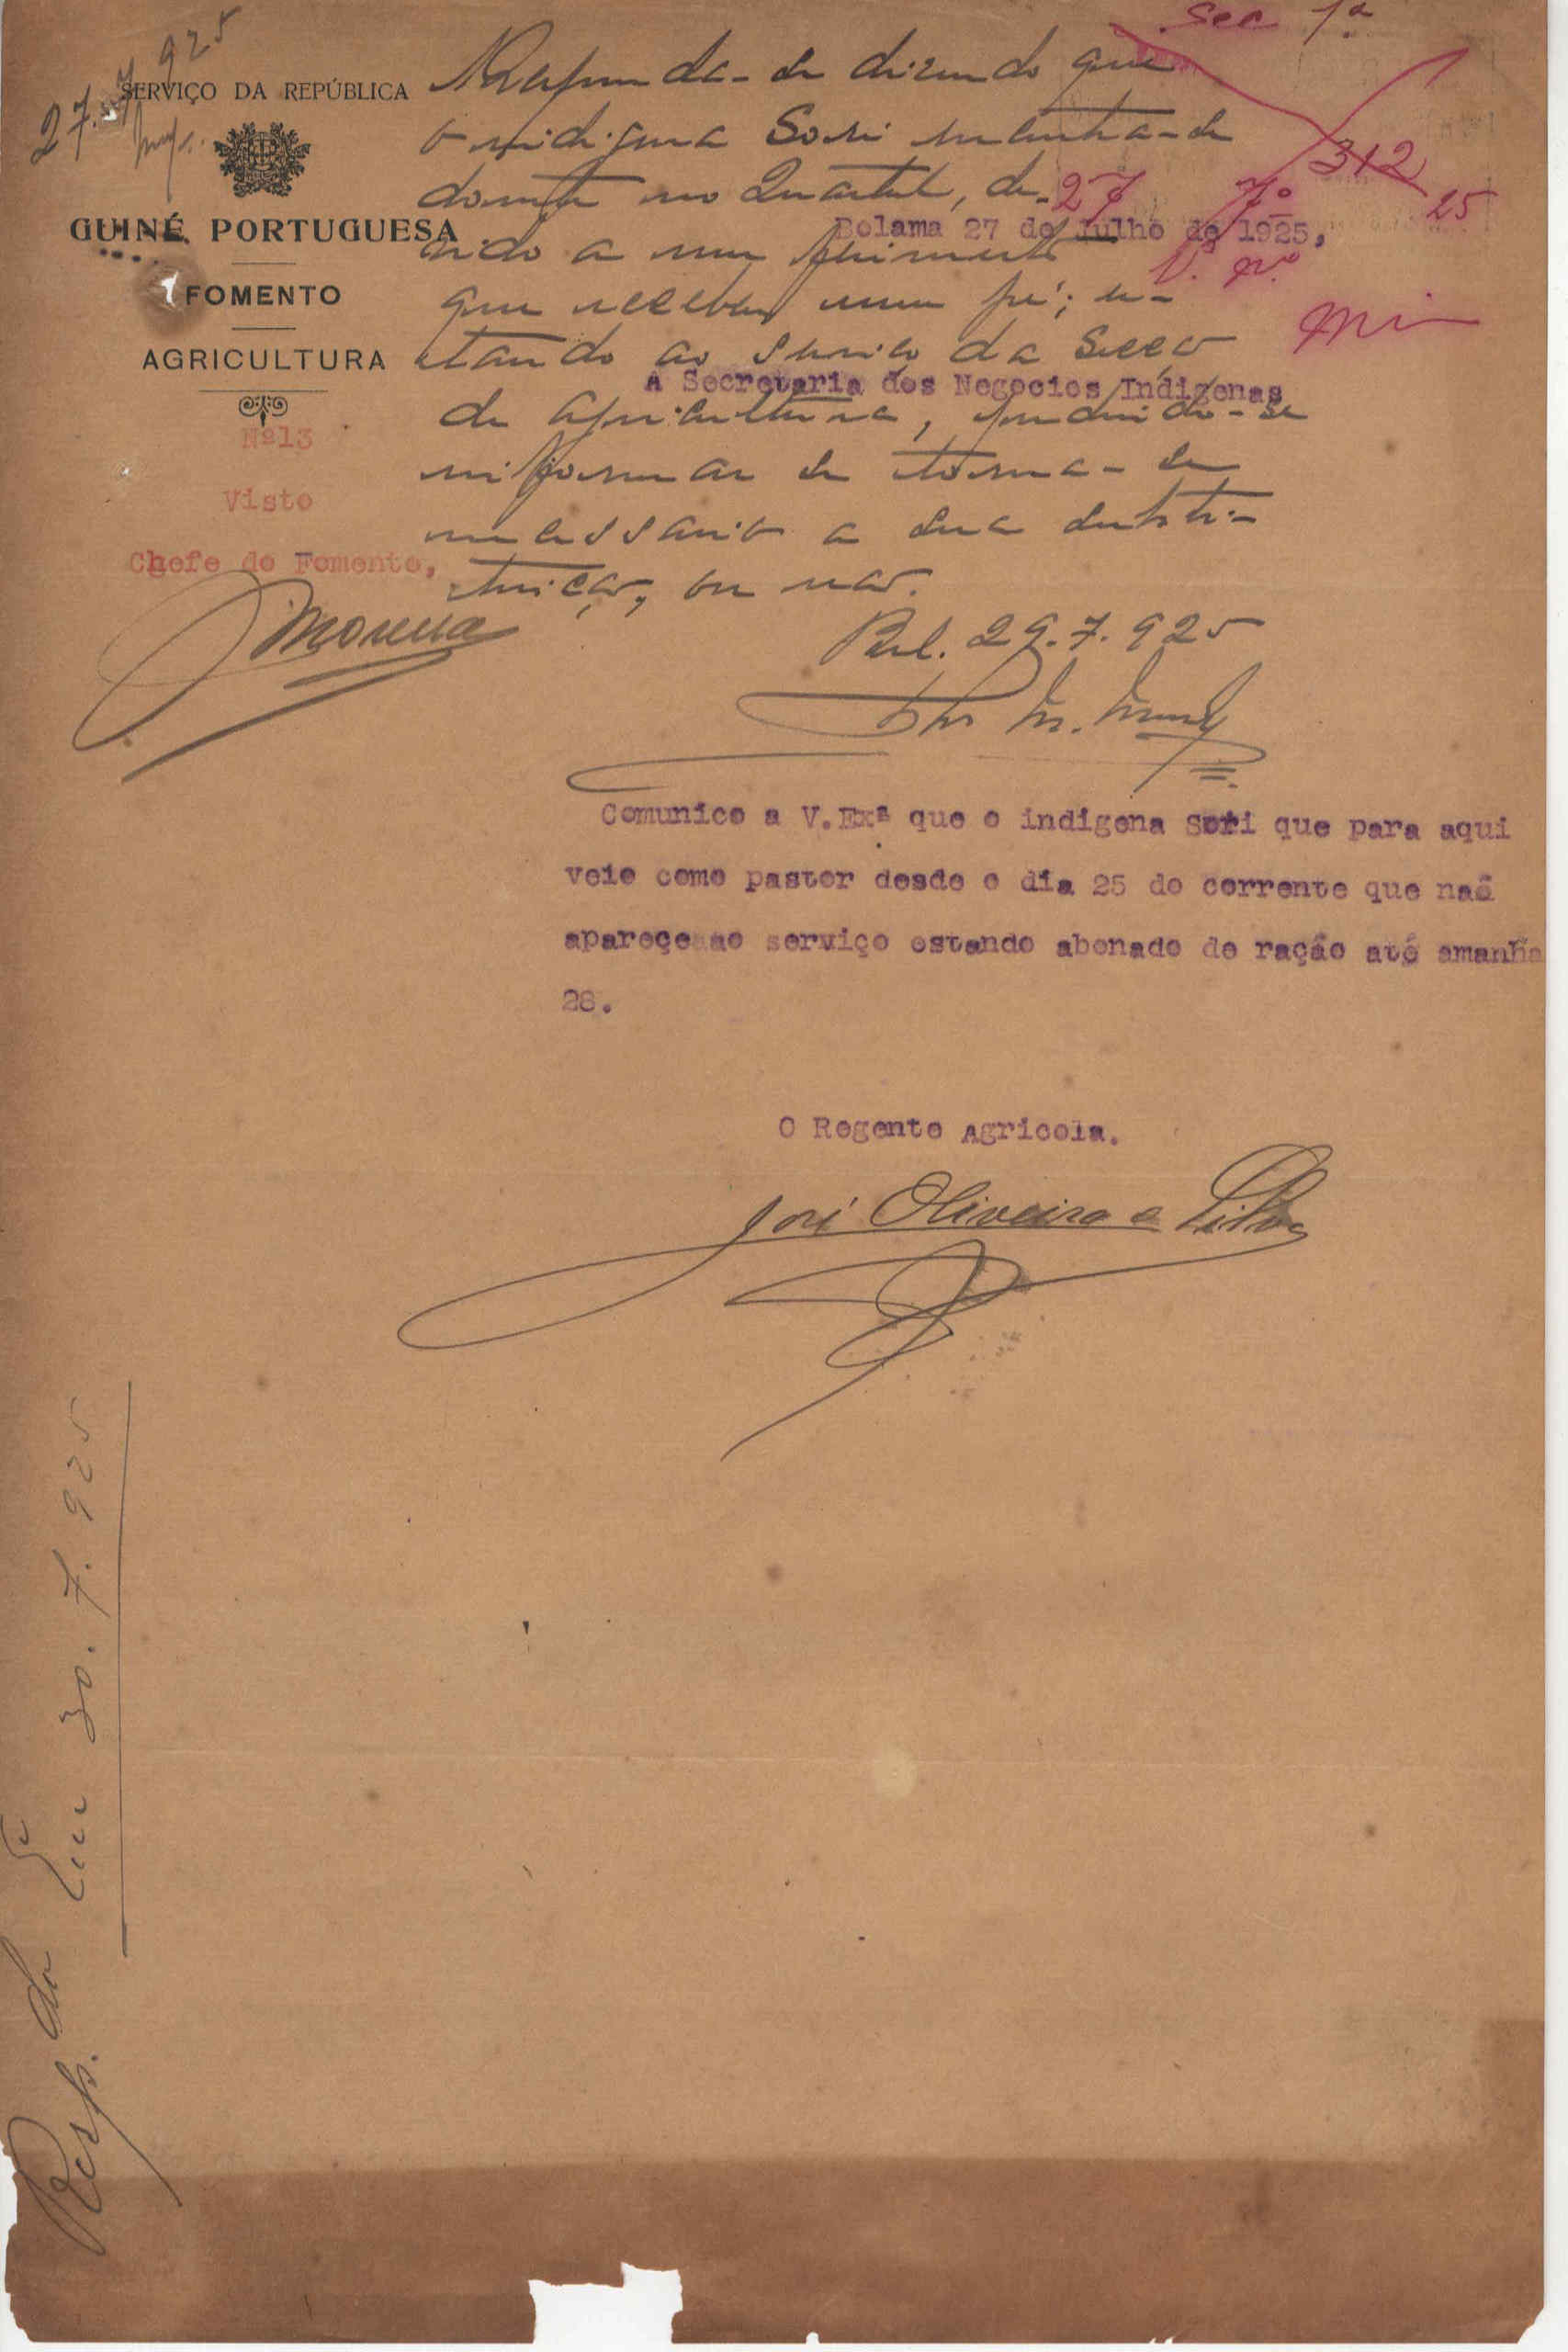 27.7.925
SERVIÇO DA REPÚBLICA
GUINÉ PORTUGUESA
FOMENTO
AGRICULTURA
Nº13
Visto
Chefe do Fomento,
Moreira
Sec 1ª
312
27 7º 25
Responda-se dizendo que
o indigena Sori encontra-se
doente no Quartel, de-
vido a um ferimento
que recebeu num pé; es-
tando ao serviço da Secção
de agricultura, pedindo-se
informar se torna-se
necessario a sua substi-
tuição, ou não.
Bol. 29.7.925
Bolama 27 de Julho de 1925,
A Secretaria dos Negocios Indígenas
Comunico a V.Exª que o indigena Sori que para aqui
veio como pastor desde o dia 25 do corrente que naõ
apareçe ao serviço estando abonado de ração até amanhã
28.
O Regente Agricola.
José Oliveira e Silva
Resp. do Em 30.7.925